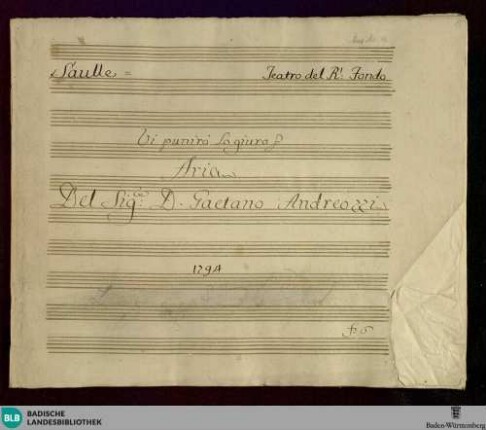 Saulle = Teatro del Rl. Fondo
Vi puniró lo giuro
Aria
Del Sigre. D. Gaetano Andreozzi
1794
BLB BADISCHE
LANDESBIBLIOTHEK
Baden-Württemberg